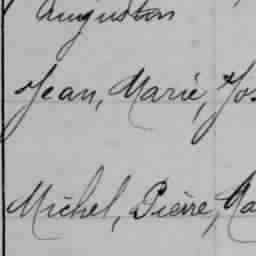 Augustin
Jean, Marie, Jos
Michel, Pierre, Ma